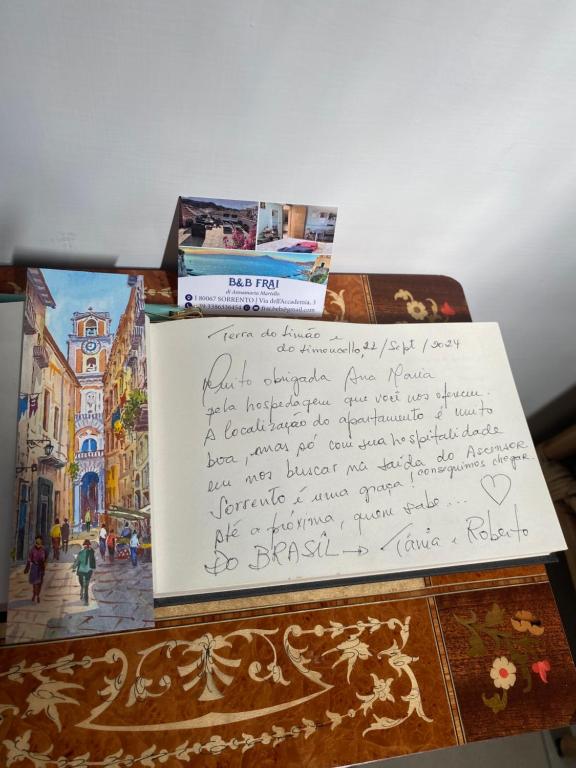 B&B FRAI
di Annamaria Marzullo
I 80067 SORRENTO | Via dell'Accademia, 3
39 3386536454 fraibeb@gmail.com
Terra do limão e
do limoncello, 22/Sept/2024
Muito obrigada Ana Maria
pela hospedagem que você nos oferceu.
A localização do apartamento é muito
boa, mas só com sua hospitalidade
em nos buscar na saída do Ascensor
conseguimos chegar.
Sorrento é uma graça!
Até a próxima, quem sabe...
DO BRASIL → Tânia e Roberto